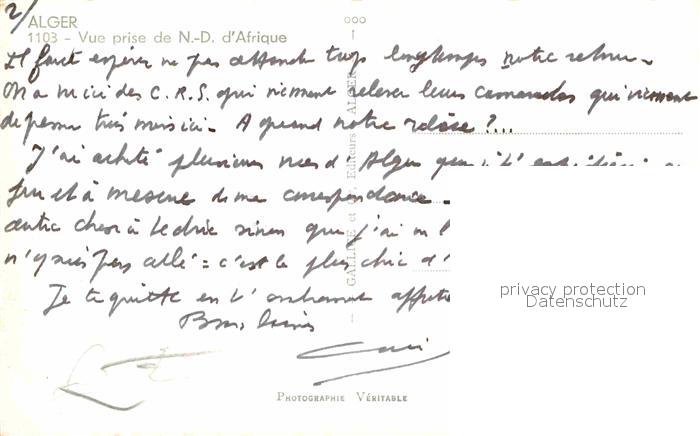 2/
ALGER
1103 - Vue prise de N.-D. d'Afrique
Il faut espérer ne pas attendre trop longtemps notre retour.
On a vu ici des C.R.S. qui viennent relever leurs camarades qui viennent
de passer trois mois ici. A quand notre relève ?...
J'ai acheté plusieurs vues d'Alger que
fur et à mesure de ma correspondance.
autre chose à te dire sinon que j'ai
n'y suis pas allé : c'est le plus chic
Je te quitte en t'embrassant
Bons baisers
GALLIVE et Cie, Editeurs - ALGER
PHOTOGRAPHIE VÉRITABLE
privacy protection
Datenschutz